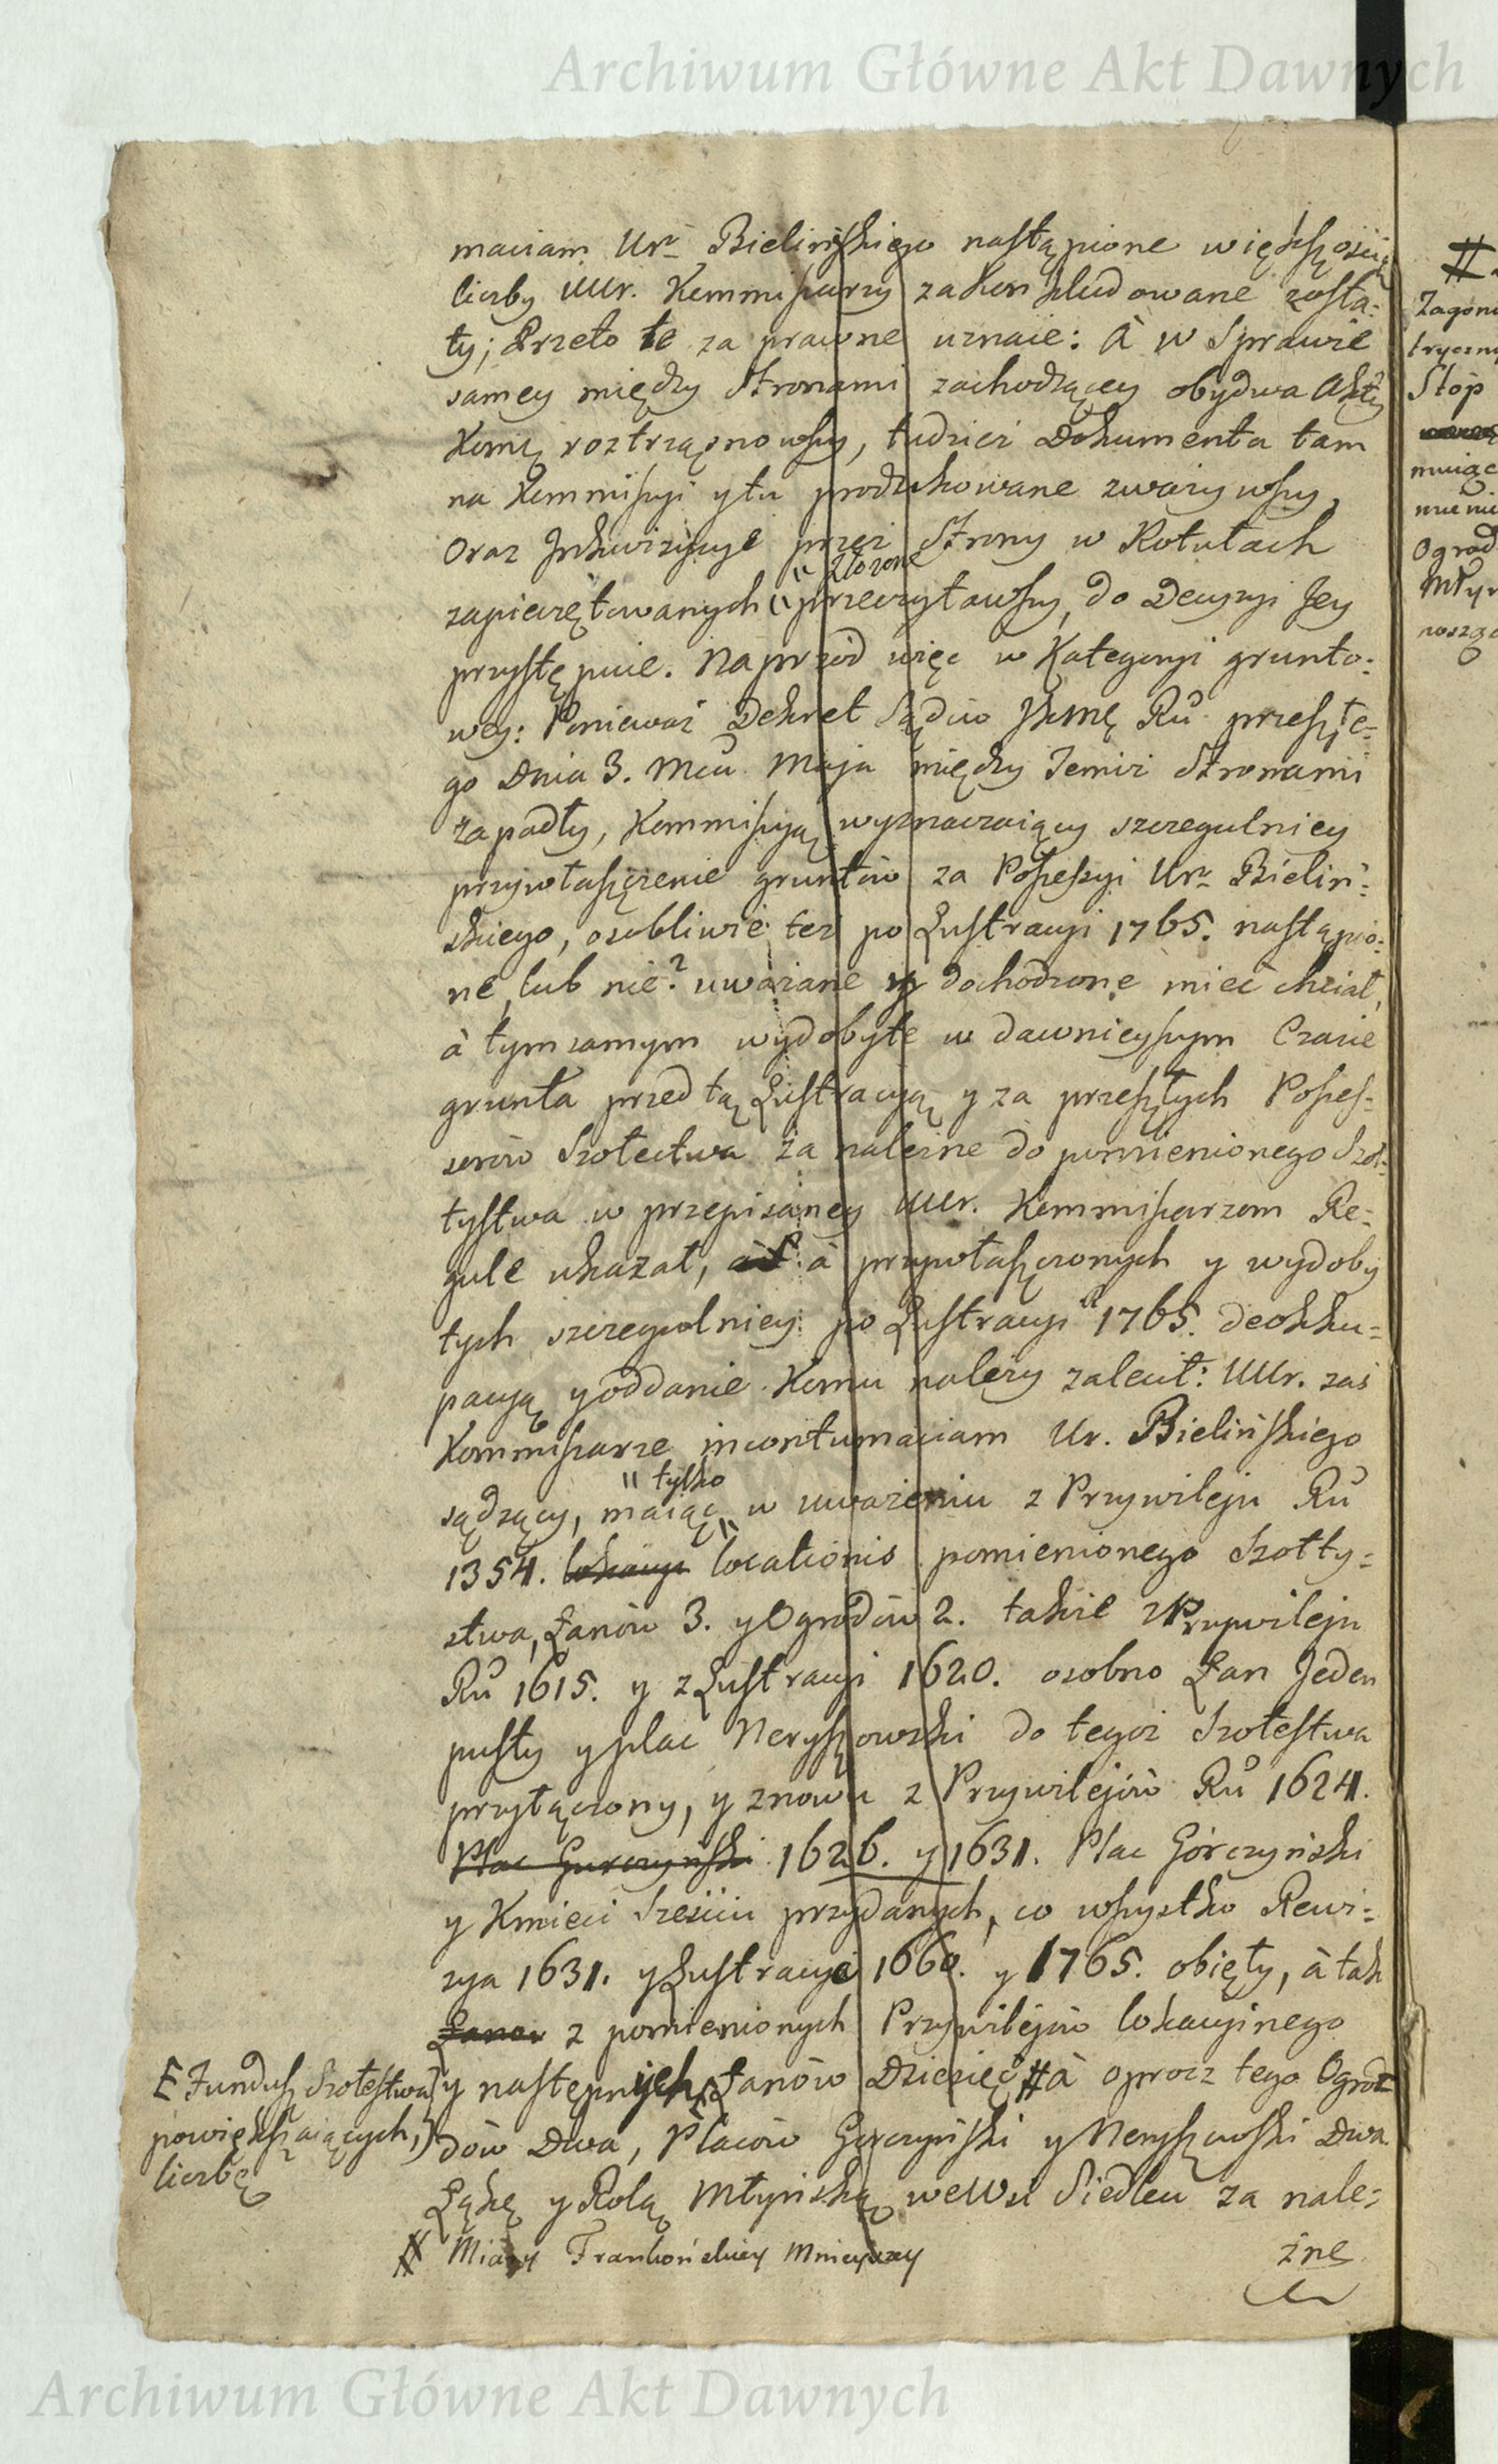 Archiwum Główne Akt Dawnych
maciam Ur. Bielińskiego nastąpione większością
liczby UUr. Kommissarzy zakonkludowane zosta-
ły; Przeto te za prawne uznaie: à w Sprawie
samey między Stronami zachodzącey obydwa Akty
Komię roztrząsnowszy, tudzież Dokumenta tam
na Kommissyi y tu produkowane zważywszy,
Oraz Inkwizycye przez Strony w Rotułach
złożone
zapieczętowanych przeczytawszy, do Decyzyi Jey
przystępuie. Naprzód więc w Kategoryi grunto-
wey: Ponieważ Dekret Sądów JKMę Ru przeszłe-
go Dnia 3. Mca Maja między Temiż Stronami
zapadły, Kommissyą wyznaczaiący szczegulniey
przywłaszczenie gruntów za Possessyi Ur. Bieliń-
skiego, osobliwie też po Lustracyi 1765. nastąpio-
ne, lub nie? uważane y dochodzone mieć chciał,
à tym samym wydobyte w dawnieyszym Czasie
grunta przed tą Lustracyą y za przeszłych Posses-
sorów Szołectwa za należne do pomienionego Szoł-
tystwa w przepisaney UUr. Kommissarzom Re-
gule ukazał, à przywłaszczonych y wydoby
tych szczegulniey po Lustracyi 1765. deokku-
pacyą y oddanie Komu należy zalecił: UUr. zaś
Kommissarze incontumaciam Ur. Bielińskiego
tylko
sądzący, maiąc w uważeniu z Przywileju Ru
1354. locationis pomienionego Szołty-
stwa, Łanów 3. y Ogrodów 2. także z Przywileju
Ru 1615. y z Lustracyi 1620. osobno Łan Jeden
pusty y plac Neryszowski do tegoż Szołestwa
przyłączony, y znowu z Przywilejów Ru 1624.
Plac Gurczyński 1626. y 1631. Plac Górczyński
y Kmieci Sześciu przydanych, co wszystko Rewi-
zya 1631. y Lustracye 1660. y 1765. obięły, à tak
Łanow z pomienionych Przywilejów lokacyinego
y następnych Łanów Dziesięć # à oprócz tego Ogro-
dów Dwa, Placów Gorczyński y Neryszowski Dwa
Łąkę y Rolą Młyńską we Wsi Siedlcu za nale-
żne
# Miary Frankońskiey Mnieyszey
E Fundusz Szołestwa
powiększaiących,
liczbę
#
Zagon
tryczny
Stop
muiąc
Ogrod
Młyn
Archiwum Główne Akt Dawnych